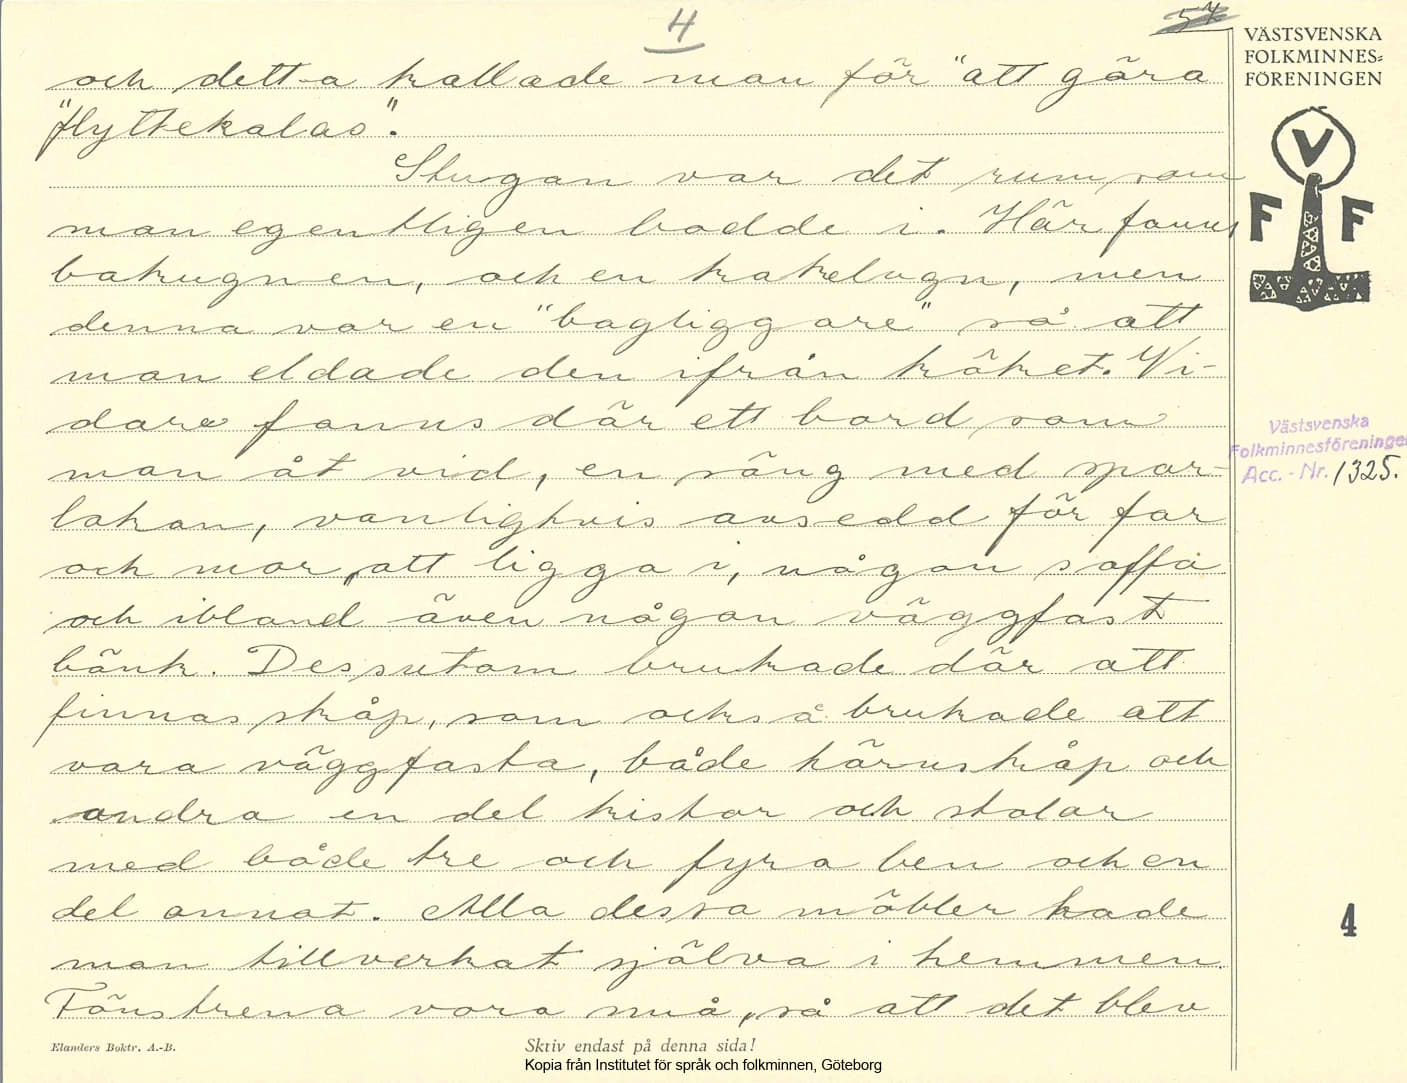 4
57
VÄSTSVENSKA
FOLKMINNES-
FÖRENINGEN
V
F F
och detta kallade man för "att göra
"flyttekalas".
Stugan var det rum som
man egentligen bodde i. Här fanns
bakugnen, och en kakelugn, men
denna var en "bagliggare" så att
man eldade den ifrån köket. Vi-
dare fanns där ett bord som
man åt vid, en säng med spar-
lakan, vanligtvis avsedd för far
och mor, att ligga i, någon soffa
och ibland även någon väggfast
bänk. Dessutom brukade där att
finnas skåp, som också brukade att
vara väggfasta, både hörnskåp och
andra en del kistor och stolar
med både tre och fyra ben och en
del annat. Alla dessa möbler hade
man tillverkat själva i hemmen.
Fönstrena voro små, så att det blev
Västsvenska
Folkminnesföreningen
Acc. - Nr. 1325.
4
Elanders Boktr. A.-B.
Skriv endast på denna sida!
Kopia från Institutet för språk och folkminnen, Göteborg